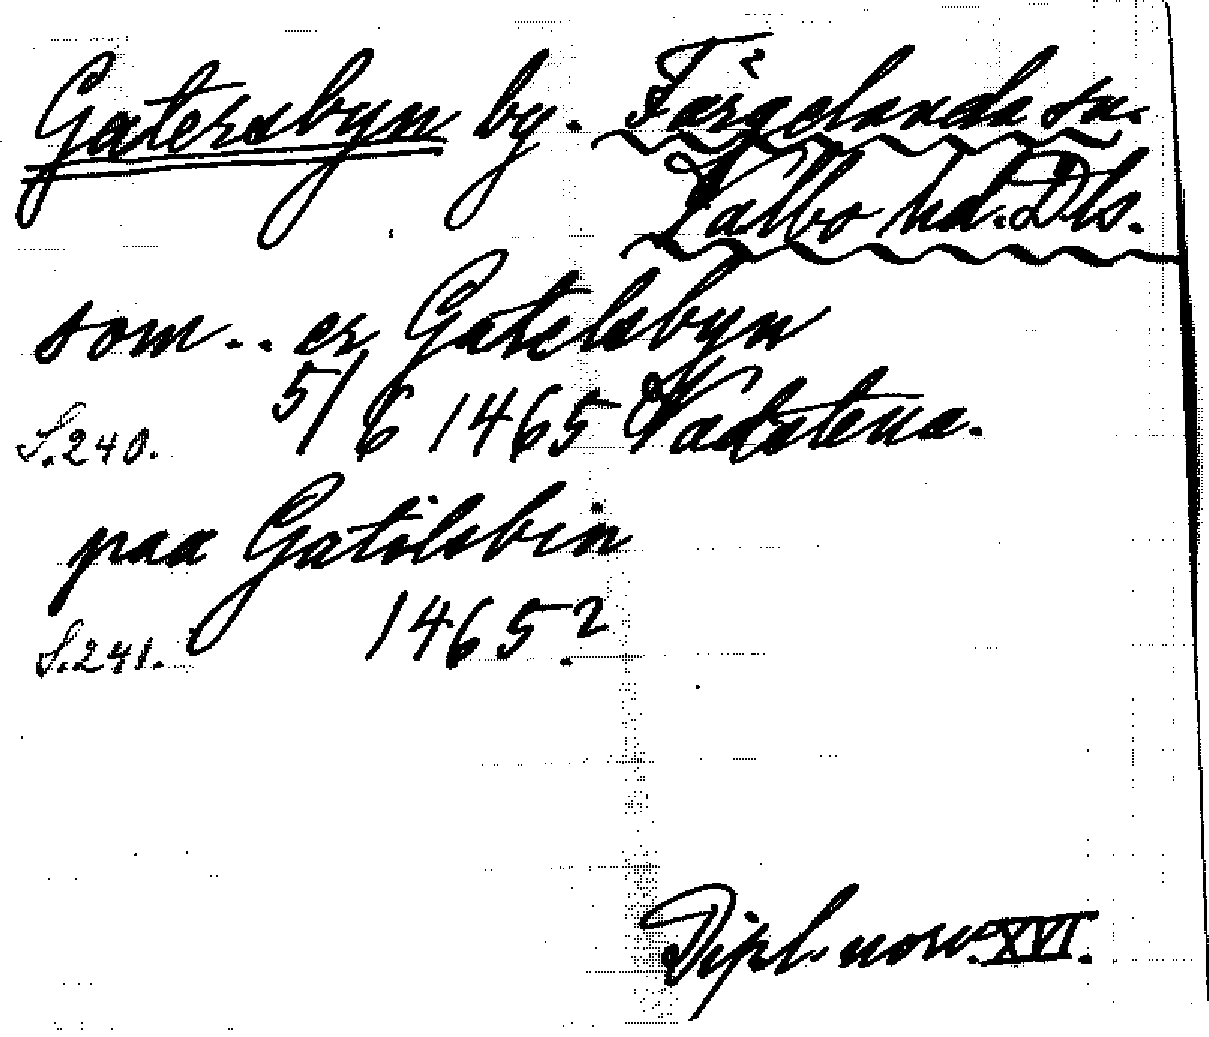 Gatersbyn by. Färgelanda sn.
Valbo hd. Dls.
som .. er Gatelsbyn
S. 240. 5/6 1465 Vadstena.
paa Gatilsbin
S. 241. 1465?
Dipl. norv. XVI.